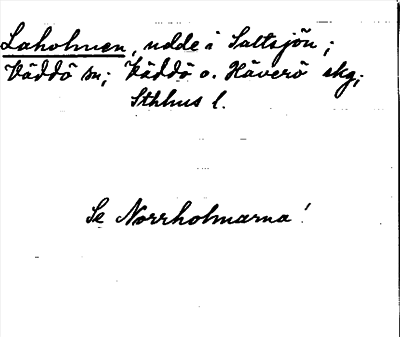 Laholmen, udde i Saltsjön;
Väddö sn; Väddö o. Häverö skg;
Sthlms l.
Se Norrholmarna!